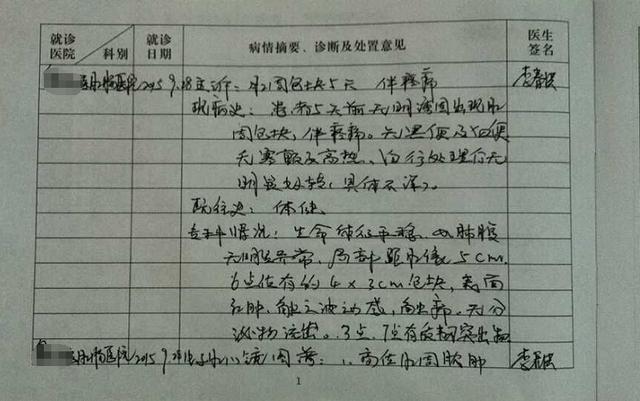 就诊医院 科别 就诊日期 病情摘要、诊断及处置意见 医生签名
肛肠医院 2015 9.28 主诉：肛周包块5天 伴疼痛
现病史：患者5天前无明诱因出现肛
周包块，伴疼痛。无黑便及血便
无寒颤及高热、自行处理后无
明显好转，具体不详。
既往史：体健
专科情况：生命体征平稳，心肺腹
无明显异常，局部距肛缘5cm
6点位有约4×3cm包块，表面
红肿，触之波动感，触痛。无分
泌物流出。3点、7点有 突出物
肛肠医院 2015 9.28 电子肛门镜回 ：1、高位肛周脓肿
1